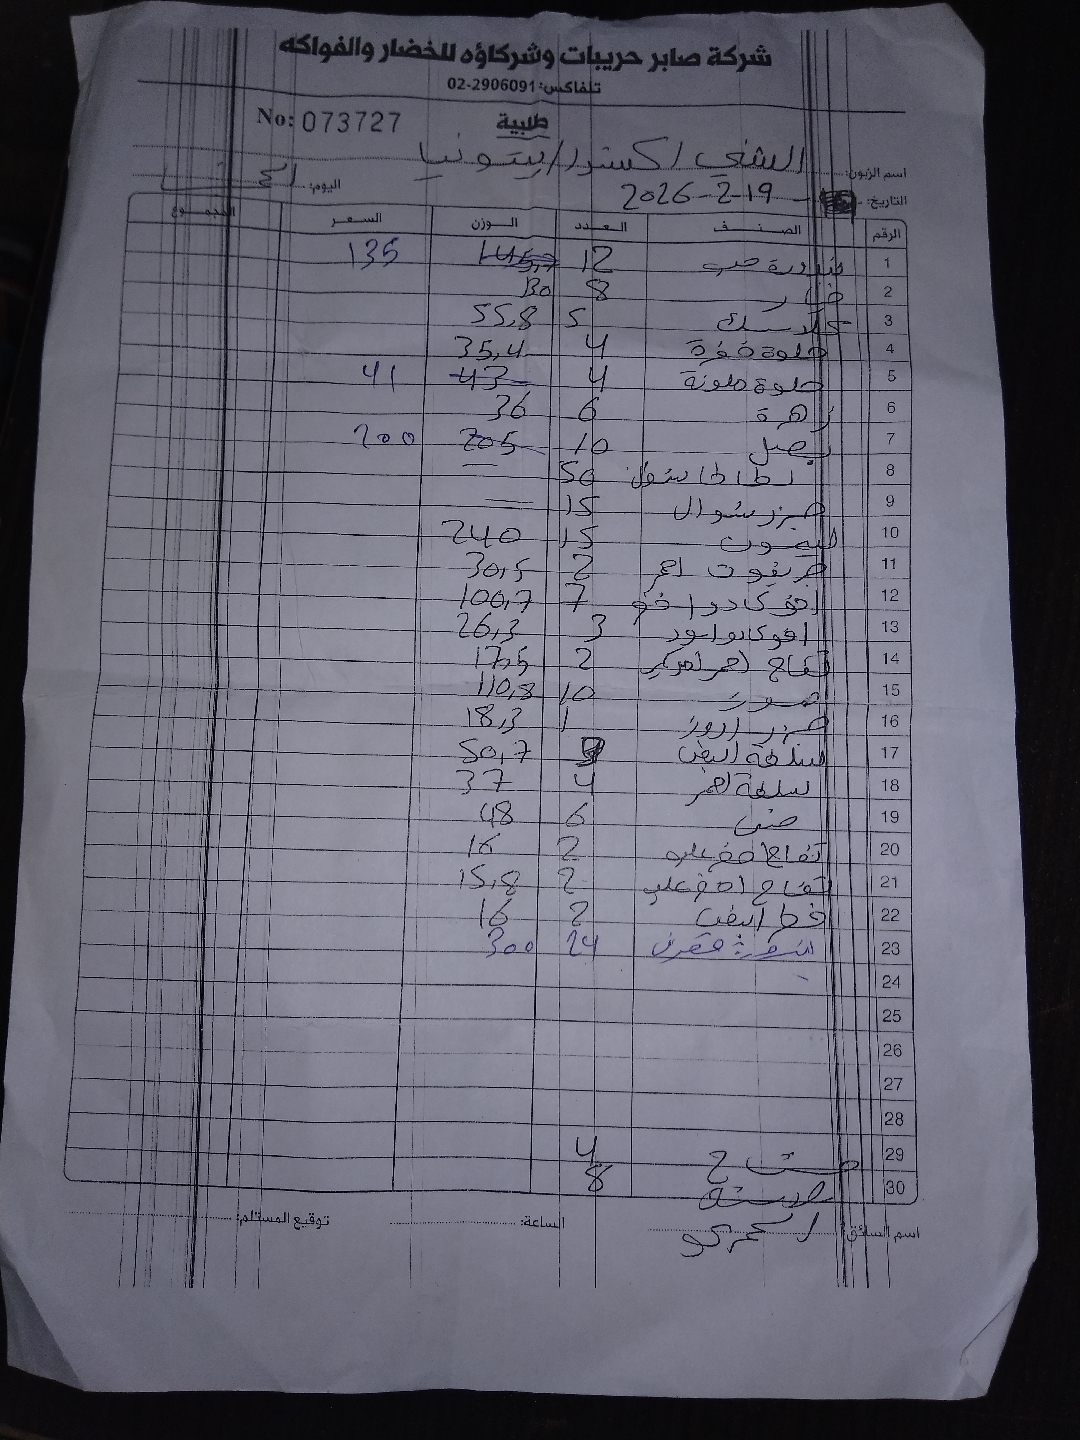 شركة صابر حريبات وشركاؤه للخضار والفواكه
تلفاكس: 02-2906091
No: 073727 طلبية
اسم الزبون: الشني اكسترا / بيتونيا
التاريخ: 2026-2-19 اليوم:
الرقم الصنف العدد الوزن السعر المجموع
1 بندورة حب 12 145,7 135
2 خيار 8 130
3 كلاسيك 5 55,8
4 حلوة 4 35,4
5 حلوة ملونة 4 43 41
6 زهرة 6 36
7 بصل 10 205 200
8 بطاطا شوال 50 —
9 جزر شوال 15 —
10 ليمون 15 240
11 جريفوت احمر 2 30,5
12 افوكادو 7 100,7
13 افوكادو اسود 3 26,3
14 تفاح احمر امريكي 2 17,5
15 موز 10 110,8
16 جزر 1 18,3
17 ابيض 50,7
18 احمر 4 37
19 خس 6 48
20 تفاح 2 16
21 تفاح 2 15,8
22 فطر ابيض 2 16
23 24 300
24
25
26
27
28
29 مشتاح 4
30 8
اسم السائق: الساعة: توقيع المستلم: